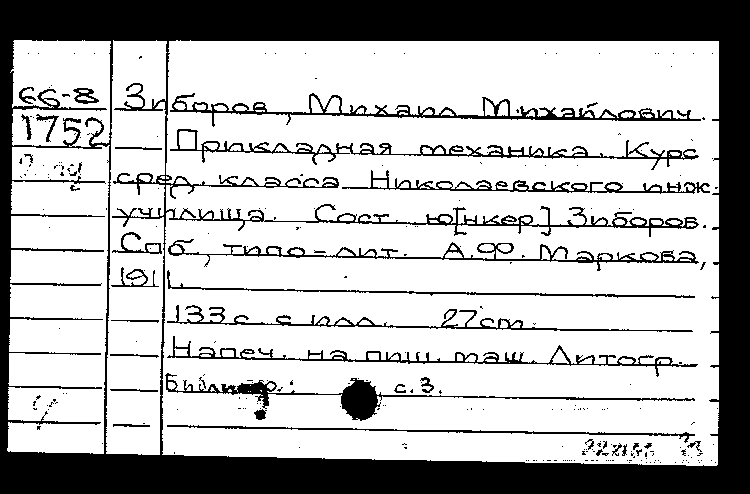 66-8
1752
Зиборов, Михаил Михайлович.
Прикладная механика. Курс
сред. класса Николаевского инж.
училища. Сост. ю[нкер] Зиборов.
Спб, типо-лит. А.Ф. Маркова,
1911.
133 с. с илл. 27 cm.
Напеч. на пиш. маш. Литогр.
Библиогр.: с. 3.